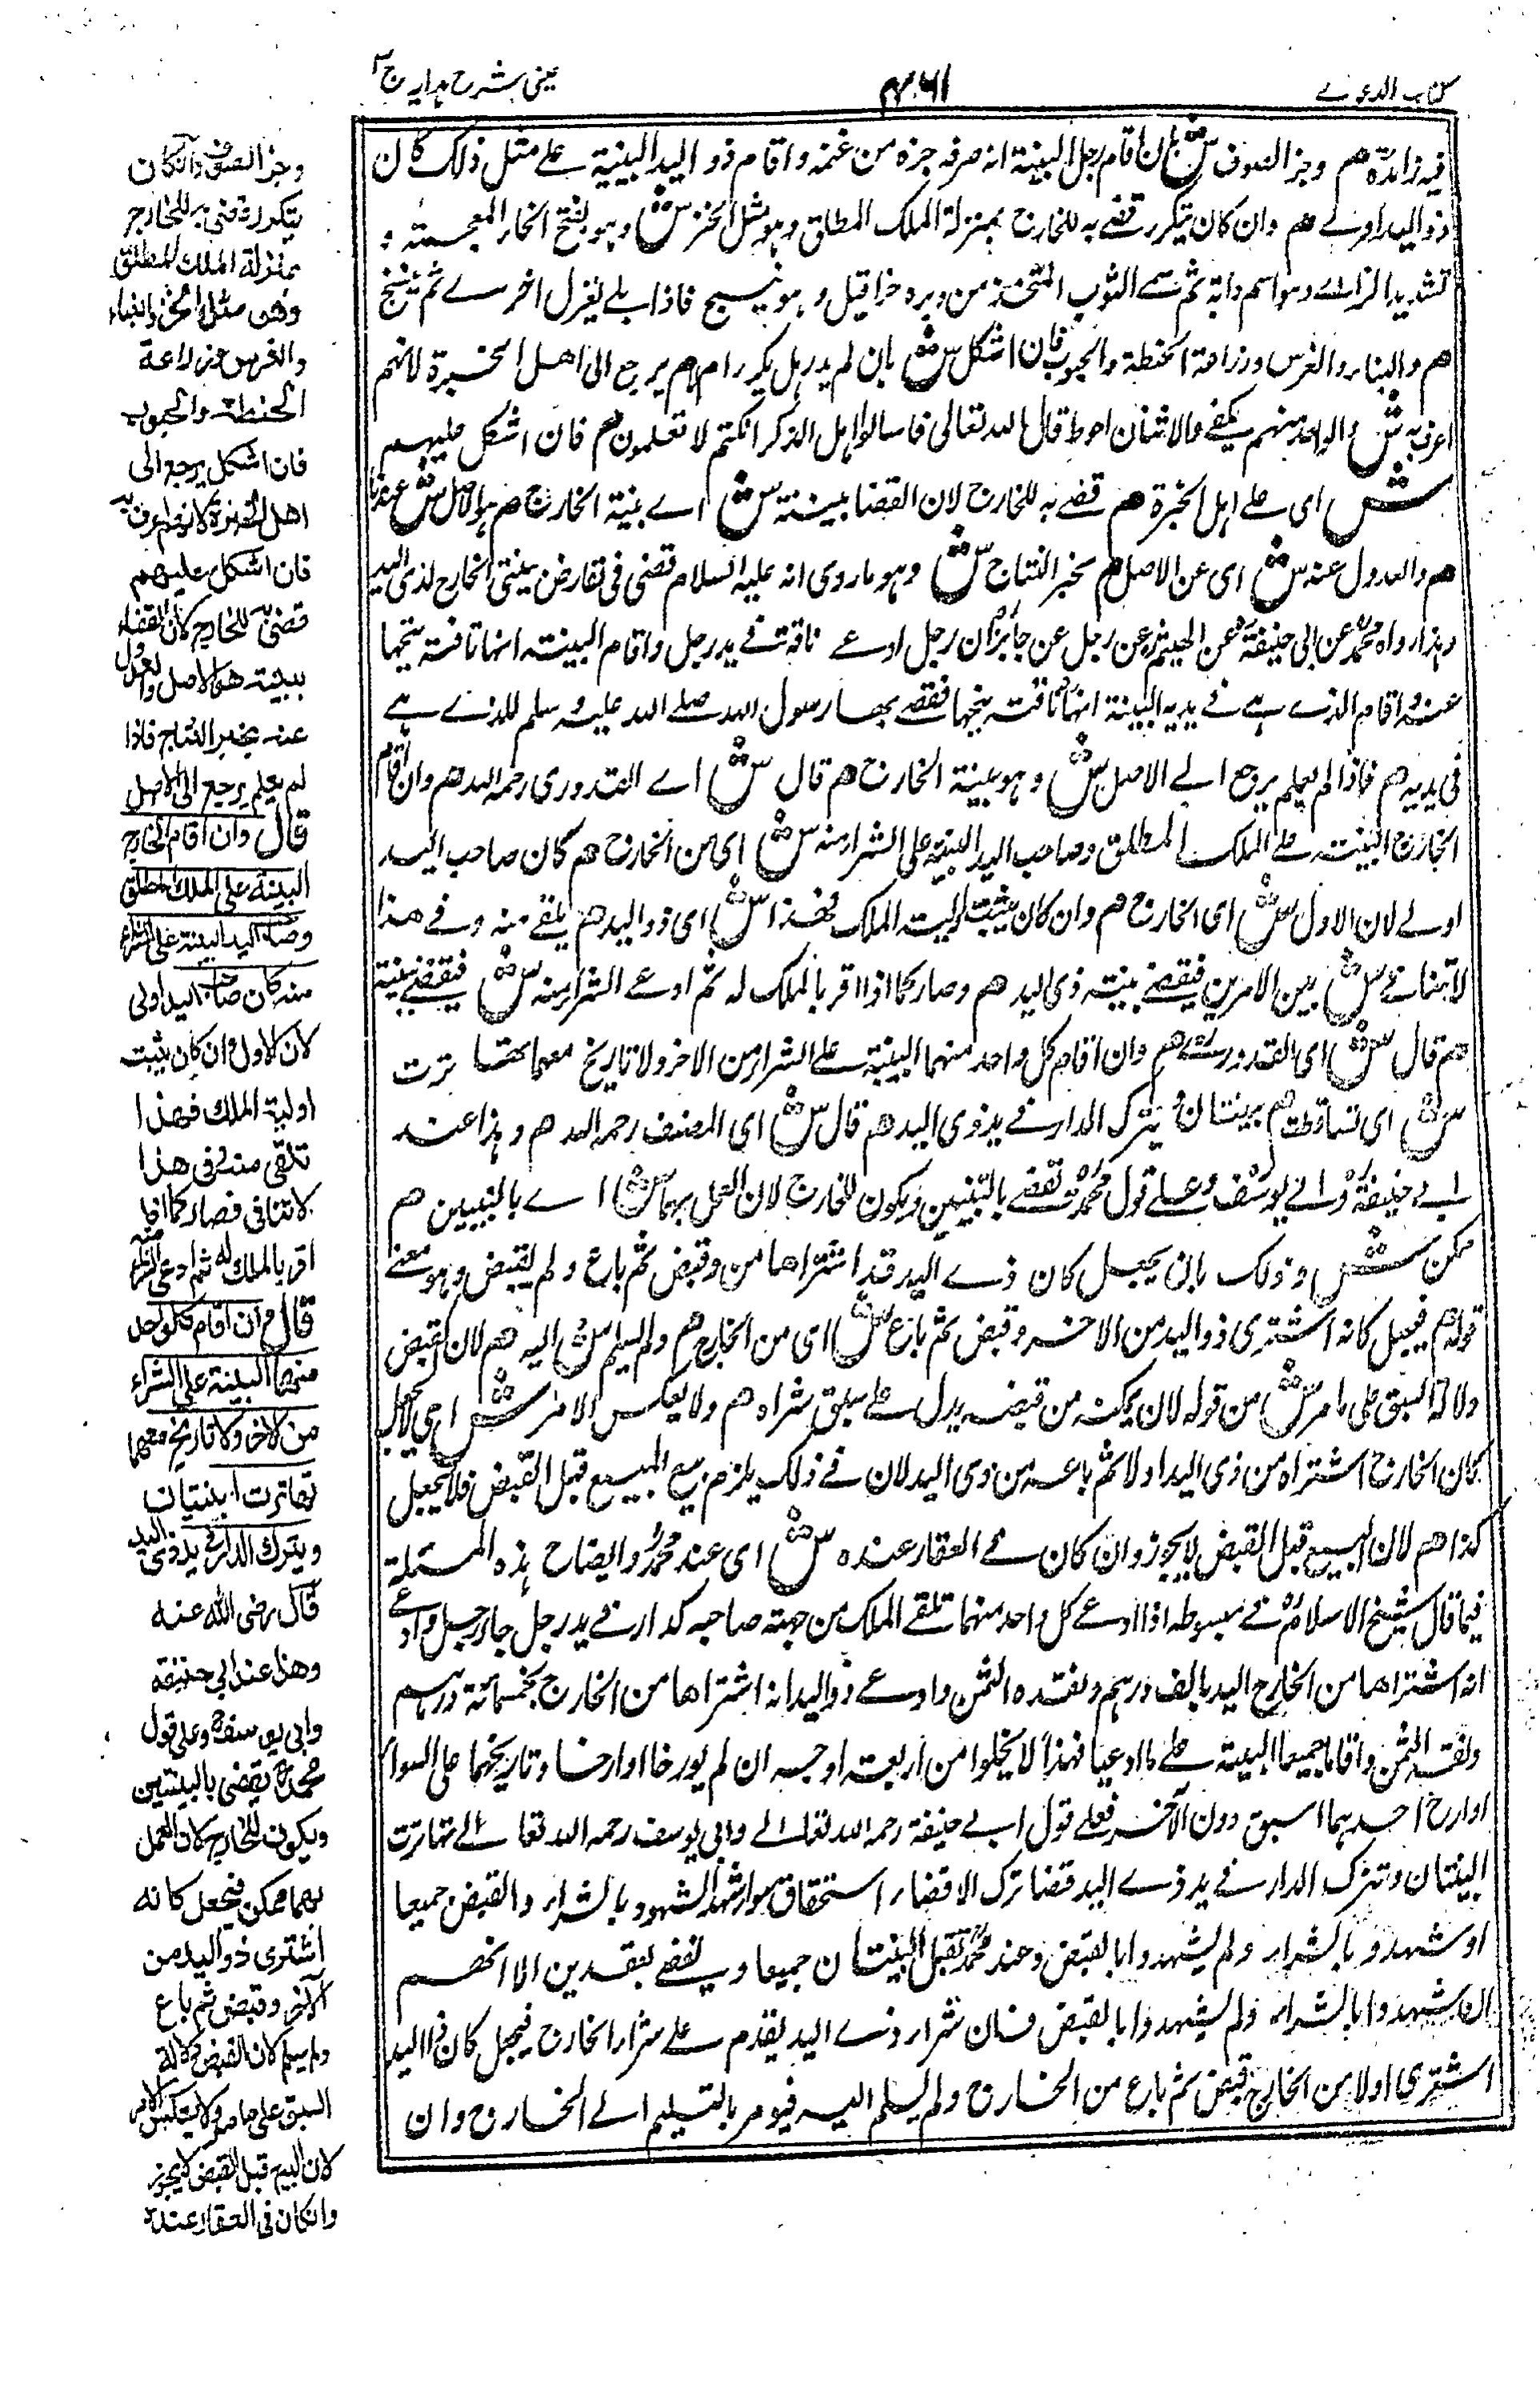 كتاب الدعوے
۴۶۱
عينى شرح هدايه ج ۳
فيه زائدة هم وجز الصوف ش بان اقام رجل البينة انه صوفه جزه من غنمه واقام ذو اليد البينة على مثل ذلك كان
ذو اليد اولے هم وان كان يتكرر قضے به للخارج بمنزلة الملك المطلق وهو مثل الخز ش وهو بفتح الخاء المعجمة و
تشديد الزاے وهو اسم دابة ثم سمے الثوب المتخذ من وبره خزا قيل وهو ينسج فاذا بلے يغزل اخرے ثم ينسج
هم والبناء والغرس وزراعة الحنطة والحبوب فان اشكل ش بان لم يدر هل يتكرر ام لا هم يرجع الى اهل الخبرة لانهم
اعرف به ش والواحد منهم يكفے والاثنان احوط قال الله تعالى فاسألوا اهل الذكر ان كنتم لا تعلمون هم فان اشكل عليهم
ش اى علے اهل الخبرة هم قضے به للخارج لان القضا ببينته ش اے بينة الخارج هم هو الاصل ش عندنا
هم والعدول عنه ش اى عن الاصل هم بخبر النتاج ش وهو ما روى انه عليه السلام قضى فى تعارض بينتى الخارج لذى اليد
وهذا رواه محمد عن ابى حنيفة عن الهيثم عن رجل عن جابر ان رجل ادعے ناقة فے يد رجل واقام البينة انها ناقته نتجها
عنده واقام الذے هے فے يديه البينة انها ناقته نتجها فقضے بها رسول الله صلے الله عليه وسلم للذے هے
فى يديه هم فاذا لم يعلم يرجع الے الاصل ش وهو بينة الخارج هم قال ش اے القدورى رحمه الله هم وان اقام
الخارج البينة علے الملك المطلق وصاحب اليد البينة على الشراء منه ش اى من الخارج هم كان صاحب اليد
اولے لان الاول ش اى الخارج هم وان كان يثبت اولية الملك فهذا ش اى ذو اليد هم تلقے منه وفے هذا
لا تنافے ش بين الامرين فيقضے ببينة ذى اليد هم وصار كما اذا اقر بالملك له ثم ادعے الشراء منه ش فيقضے ببينة
هم قال ش اى القدورے هم وان اقام كل واحد منهما البينة علے الشراء من الاخر ولا تاريخ معهما تهاترت
ش اى تساقطت هم بينتان ويترك الدار فے يد ذوى اليد هم قال ش اى المصنف رحمه الله هم وهذا عند
ابے حنيفة وابے يوسف وعلے قول محمد يقضے بالبينتين ويكون للخارج لان العمل بهما ش اے بالبينتين هم
ممكن ش وذلك بان يجعل كان ذے اليد قد اشتراها من وقبض ثم باع ولم يقبض وهو معنے
قوله هم فيجعل كانه اشترى ذو اليد من الاخر وقبض ثم باع ش اى من الخارج هم ولم يسلم ش اليه هم لان القبض
دلالة السبق على ما مر ش من قوله لان تمكنه من قبضه يدل علے سبق شراه هم ولا يعكس الامر ش اى لا يجعل
كان الخارج اشتراه من ذى اليد اولا ثم باعه من ذوى اليد لان فے ذلك يلزم بيع المبيع قبل القبض فلا يجعل
كذا هم لان البيع قبل القبض لا يجوز وان كان فے العقار عنده ش اى عند محمد وايضاح هذه المسئلة
فيما قال شيخ الاسلام فے مبسوطه اذا ادعے كل واحد منهما تلقے الملك من جهة صاحبه كدار فے يد رجل جاء رجل وادعے
انه اشتراها من الخارج اليد بالف درهم ونقده الثمن وادعے ذو اليد انه اشتراها من الخارج بخمسمائة درهم
ونقده الثمن واقاما جميعا البينة علے ما ادعيا فهذا لا يخلوا من اربعة اوجه ان لم يورخا او ارخا وتاريخهما على السواء
او ارخ احدهما اسبق دون الآخر فعلے قول ابے حنيفة رحمه الله تعالے وابى يوسف رحمه الله تعالے تهاترت
البينتان وتترك الدار فے يد ذے اليد قضا ترك لا قضاء استحقاق سواء شهد الشهود بالشراء والقبض جميعا
او شهدوا بالشراء ولم يشهدوا بالقبض وعند محمد تقبل البينتان جميعا ويقضے بعقدين الا انهم
ان شهدوا بالشراء ولم يشهدوا بالقبض فان شراء ذے اليد يقدم علے شراء الخارج فيجعل كان ذا اليد
اشترى اولا من الخارج قبض ثم باع من الخارج ولم يسلم اليه فيومر بالتسليم الے الخارج وان
وجز الصوف وانكان
يتكرر قضى به للخارج
بمنزلة الملك المطلق
وهو مثل الخز والبناء
والغرس وزراعة
الحنطة والحبوب
فان اشكل يرجع الى
اهل الخبرة لانهم اعرف به
فان اشكل عليهم
قضى به للخارج لان القضاء
ببينته هو الاصل والعدول
عنه بخبر النتاج فاذا
لم يعلم يرجع الى الاصل
قال وان اقام الخارج
البينة على الملك المطلق
وصاحب اليد البينة على الشراء
منه كان صاحب اليد اولى
لان الاول وان كان يثبت
اولية الملك فهذا
تلقى منه وفى هذا
لا تنافى فصار كما اذا
اقر بالملك له ثم ادعى الشراء منه
قال وان اقام كل واحد
منهما البينة على الشراء
من الاخر ولا تاريخ معهما
تهاترت البينتان
ويترك الدار فى يد ذى اليد
قال رضى الله عنه
وهذا عند ابى حنيفة
وابى يوسف وعلى قول
محمد يقضى بالبينتين
ويكون للخارج لان العمل
بهما ممكن فيجعل كانه
اشترى ذو اليد من
الآخر وقبض ثم باع
ولم يسلم لان القبض دلالة
السبق على ما مر ولا يعكس الامر
لان البيع قبل القبض لا يجوز
وانكان فى العقار عنده